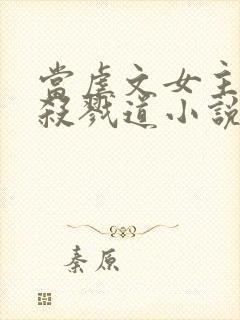 當虐文女主
殺戮道小說
秦原